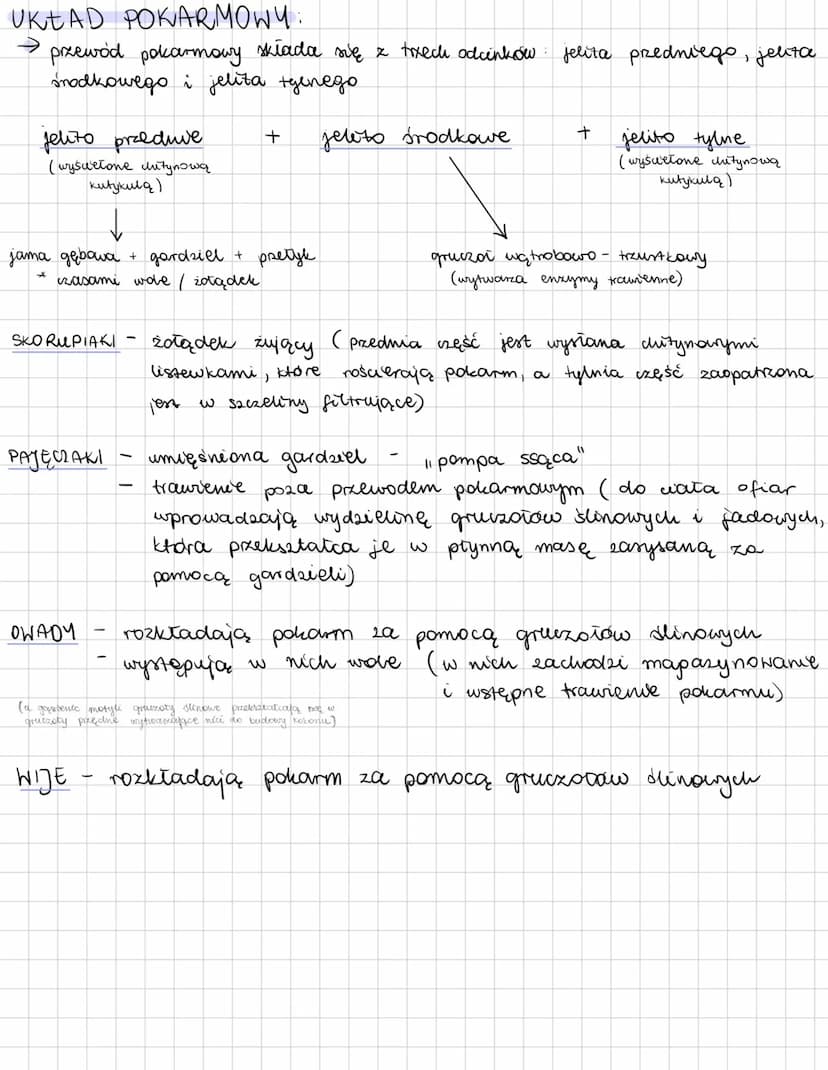 UKŁAD POKARMOWY:
→ przewód pokarmowy składa się z trzech odcinków: jelita przedniego, jelita
środkowego i jelita tylnego
jelito przednie + jelito środkowe + jelito tylne
(wyścielone chitynową (wyścielone chitynową
kutykulą) kutykulą)
jama gębowa + gardziel + przełyk gruczoł wątrobowo - trzustkowy
* czasami wole / żołądek (wytwarza enzymy trawienne)
SKORUPIAKI - żołądek żujący (przednia część jest wysłana chitynowymi
listewkami, które rościerają pokarm, a tylnia część zaopatrzona
jest w szczeliny filtrujące)
PAJĘCZAKI - umięśniona gardziel - „pompa ssąca"
- trawienie poza przewodem pokarmowym (do ciała ofiar
wprowadzają wydzielinę gruczołów ślinowych i jadowych,
która przekształca je w płynną masę zasysaną za
pomocą gardzieli)
OWADY - rozkładają pokarm za pomocą gruczołów ślinowych
- występują w nich wole (w nich zachodzi magazynowanie
i wstępne trawienie pokarmu)
(u gąsienic motyli gruczoły ślinowe przekształcają się w
gruczoły przędne wytwarzające nici do budowy kokonu)
WIJE - rozkładają pokarm za pomocą gruczołów ślinowych